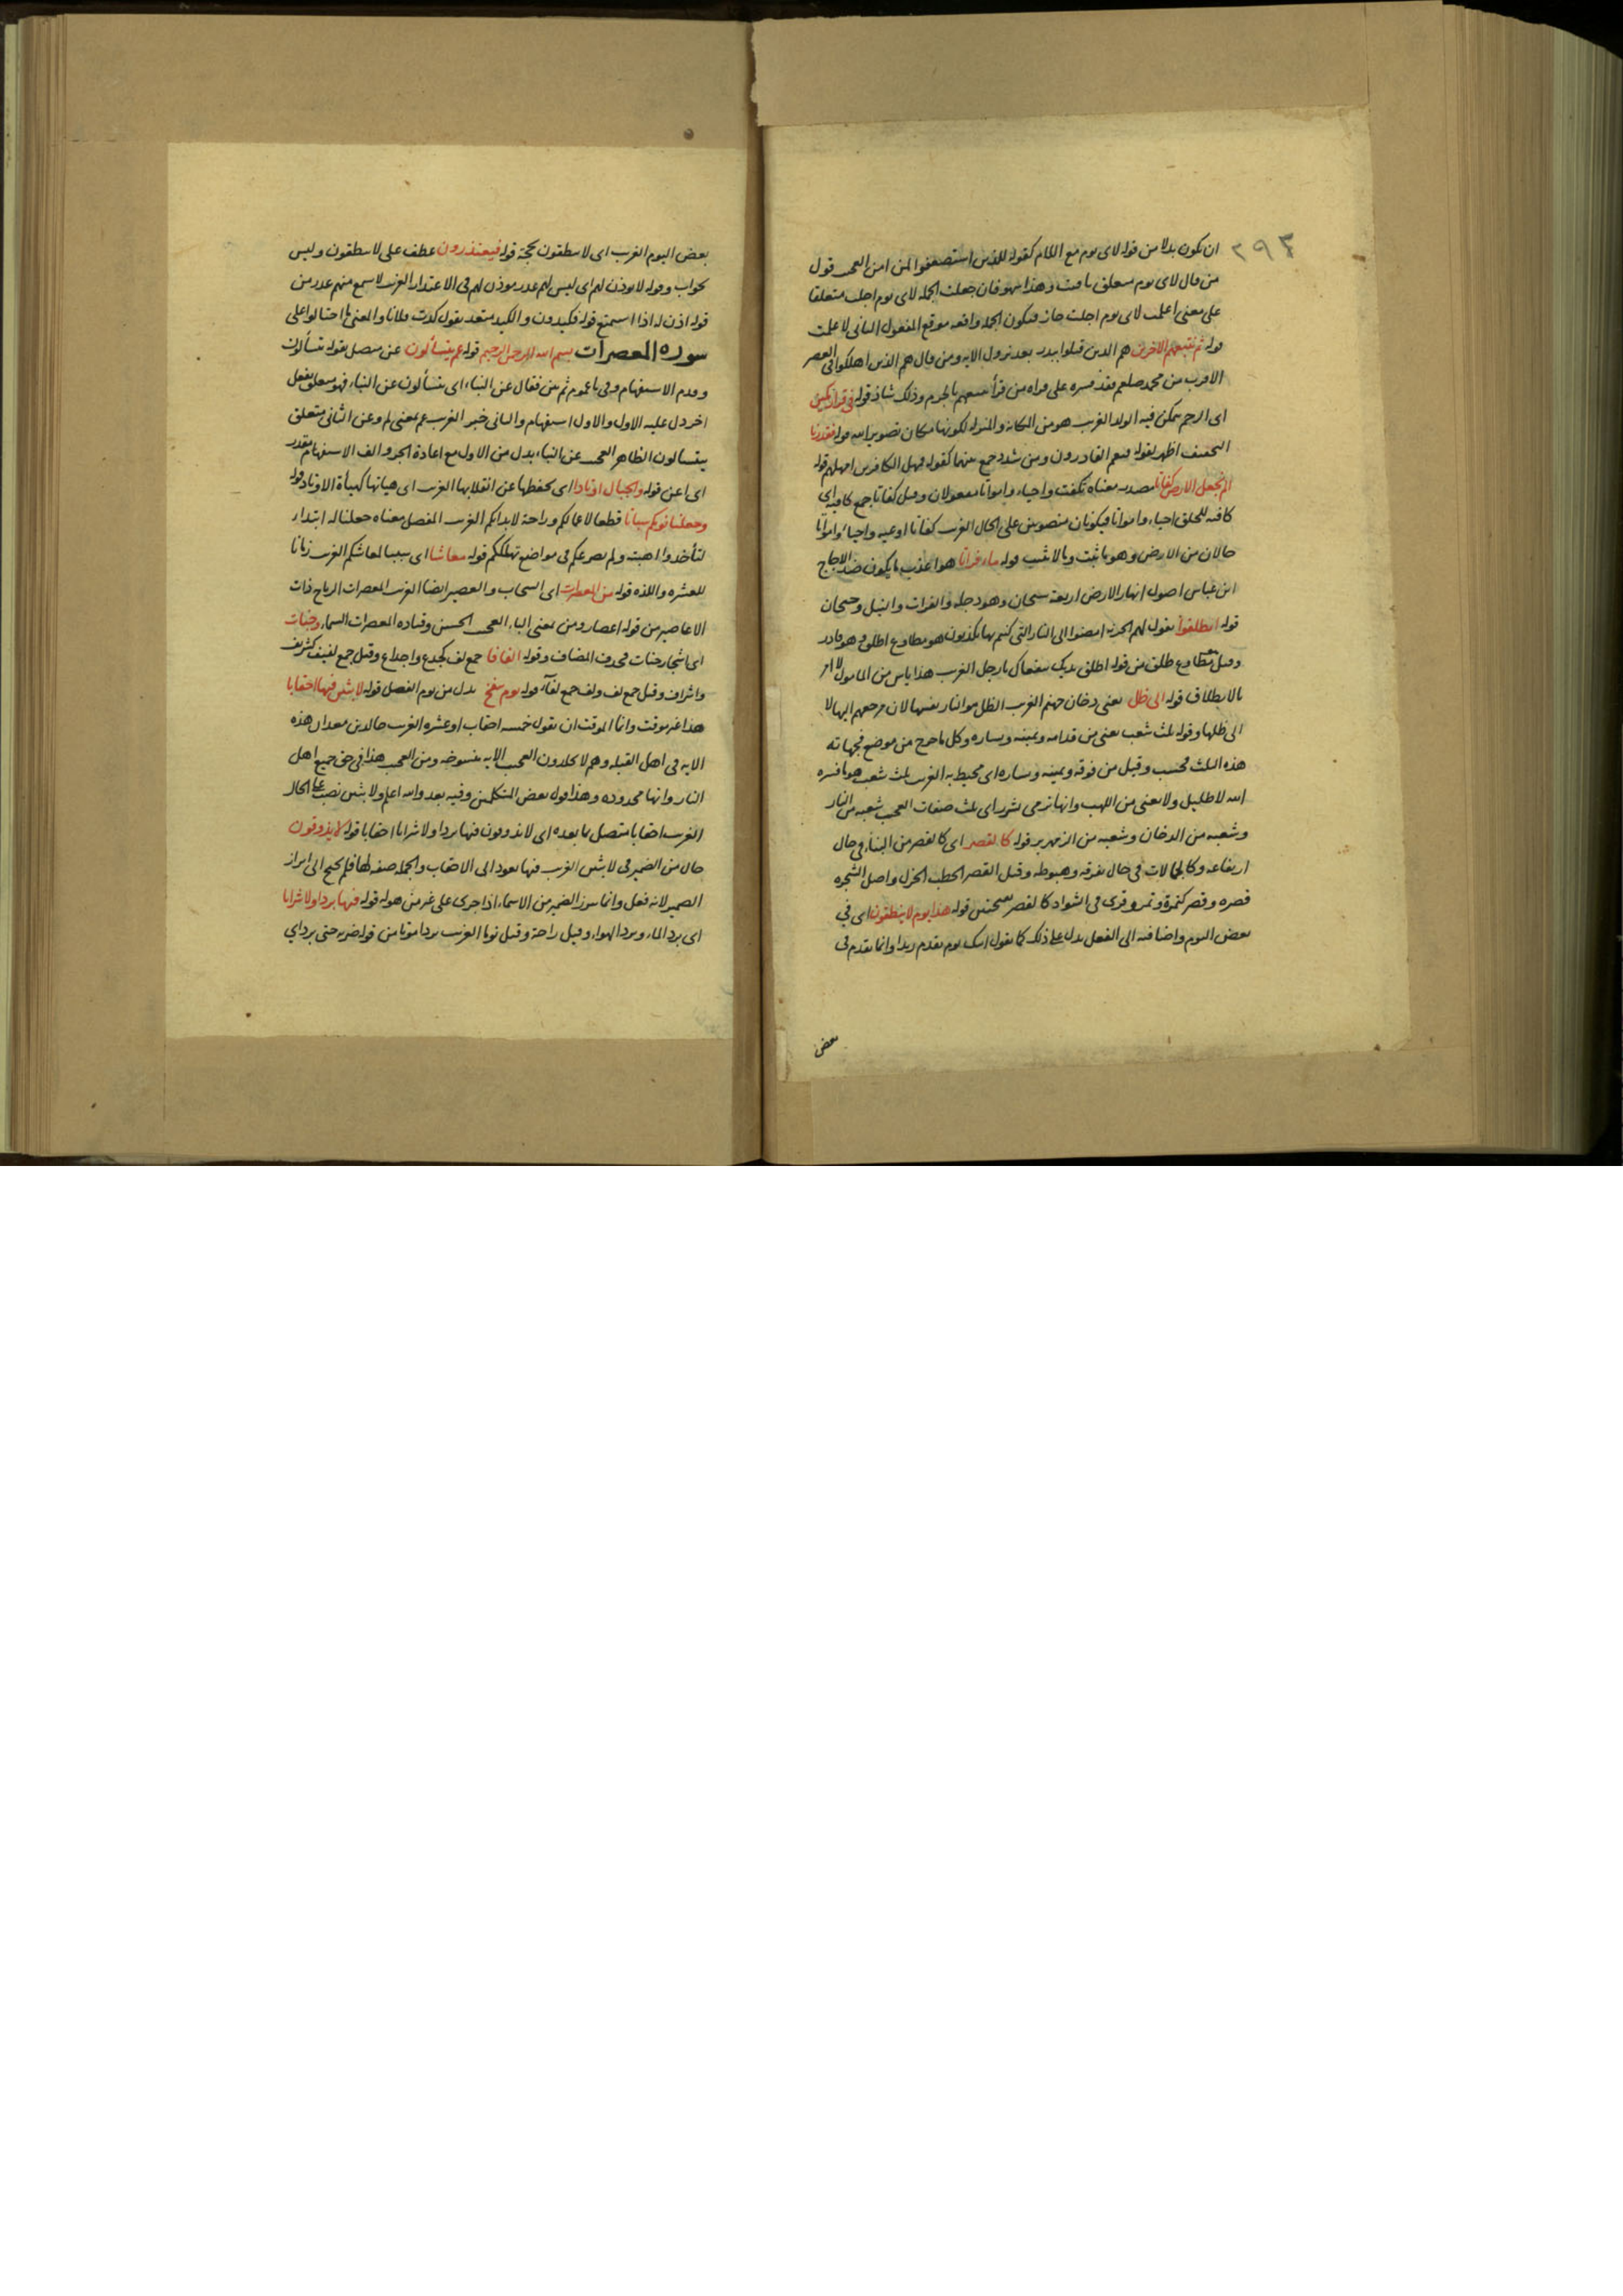 ٢٩٣
ان يكون بدلا من قوله لاى يوم مع اللام كقوله للذين استضعفوا لمن امن العجب قول
من قال لاى يوم متعلق باقتت وهذا سهو فان جعلت الجملة لاى يوم اجلت متعلقا
على معنى اعلمت لاى يوم اجلت جاز فيكون الجملة واقعه موقع المفعول الثانى لاعلمت
قوله ثم نتبعهم الاخرين هم الذين قتلوا ببدر بعد نزول الايه ومن قال هم الذين اهلكوا فى العصر
الاقرب من محمد صلعم فقد فسره على قراه من قرأ نتبعهم بالجزم وذلك شاذ قوله فى قرار مكين
اى الرحم يتمكن فيه الولد الغريب هو من المكانه والمنزله لكونها مكان تصوير الله قوله فقدرنا
التخفيف اظهر لقوله فنعم القادرون ومن شدد جمع بينهما كقوله فمهل الكافرين امهلهم قوله
الم نجعل الارض كفاتا مصدر معناه تكفت واحياء وامواتا مفعولان وقيل كفاتا جمع كافيه اى
كافه للخلق احياء وامواتا فيكونان منصوبين على الحال الغريب كفاتا اوعيه واحياء وامواتا
حالان من الارض وهو ما ينبت وما لا ينبت قوله ماء فراتا هو اعذب ما يكون ضد الاجاج
ابن عباس اصول انهار الارض اربعة سيحان وهو دجله والفرات والنيل وجيحان
قوله انطلقوا يقول لهم الخزنه امضوا الى النار التى كنتم بها تكذبون هو مطاوع اطلق وهو نادر
وقيل مطاوع طلق من قوله اطلق يديك تنفعاك يا رجل الغريب هذا ياس من المامول لا امر
بالانطلاق قوله الى ظل يعنى دخان جهنم الغريب الظل هو النار نفسها لان مرجعهم اليها لا
الى ظلها وقوله ثلث شعب يعنى من قدامه ويمينه ويساره وكل ما خرج من موضع فجهاته
هذه الثلث فحسب وقيل من فوقه ويمينه ويساره اى محيط به الغريب ثلث شعب هو ما فسره
الله لا ظليل ولا يغنى من اللهب وانها ترمى بشرر اى ثلث صفات العجب شعبه من النار
وشعبه من الدخان وشعبه من الزمهرير قوله كالقصر اى كالقصر من البناء فى حال
ارتفاعه وكالجمالات فى حال تفرقه وهبوطه وقيل القصر الحطب الجزل واصل الشجره
قصره وقصر كتمرة وتمر وقرى فى الشواذ كالقصر بفتحتين قوله هذا يوم لا ينطقون اى فى
بعض اليوم واضافته الى الفعل يدل على ذلك كما تقول اتيك يوم يقدم زيد وانما يقدم فى
بعض
بعض اليوم الغريب اى لا ينطقون بحجة قوله فيعتذرون عطف على لا ينطقون وليس
بجواب وقوله لا يوذن لهم اى ليس لهم عذر يوذن لهم فى الاعتذار الغريب لا يسمع منهم عذر من
قوله اذن له اذا استمع قوله فكيدون والكيد متعد يقول كدت فلانا والمعنى احتالوا على
سورة المعصرات بسم الله الرحمن الرحيم قوله عم يتسألون عن متصل بقوله يتسألون
وقدم الاستفهام وفى ما عموم ثم بين فقال عن النباء اى يتسألون عن النباء فهو متعلق بفعل
اخر دل عليه الاول والاول استفهام والثانى خبر الغريب عم بمعنى لم وعن الثانى متعلق
بيتسالون الظاهر العجب عن النباء بدل من الاول مع اعادة الجر والف الاستفهام مقدر
اى اعن قوله والجبال اوتادا اى يحفظها عن انقلابها الغريب اى هياتها كهيأة الاوتاد قوله
وجعلنا نومكم سباتا قطعا لاعمالكم وراحة لابدانكم الغريب المفصل معناه جعلنا له ابتداء
لتأخذوا اهبته ولم يصرعكم فى مواضع تهلككم قوله معاشا اى سببا لمعاشكم الغريب زمانا
للعشره واللذه قوله من المعصرات اى السحاب والعصير ايضا الغريب المعصرات الرياح ذات
الاعاصير من قوله اعصار ومن بمعنى الباء العجب الحسن وقتاده المعصرات السماء وجنات
اى اشجار جنات فحذف المضاف وقوله الفافا جمع لف كجذع واجذاع وقيل جمع لفيف كشريف
واشراف وقيل جمع لف ولف جمع لفآء قوله يوم ينفخ بدل من يوم الفصل قوله لابثين فيها احقابا
هذا غير موقت وانما الموقت ان يقول خمسه احقاب او عشره الغريب خالدين بعد ان هذه
الايه فى اهل القبله وهم لا يخلدون العجب الايه منسوخه ومن العجب هذا فى حق جميع اهل
النار وانها محدوده وهذا قول بعض المتكلمين وفيه بعد والله اعلم ولابثين نصب على الحال
الغريب احقابا متصل بما بعده اى لا يذوقون فيها بردا ولا شرابا احقابا قوله لا يذوقون
حال من الضمير فى لابثين الغريب فيها يعود الى الاحقاب والجمله صفه لها فلم يحتج الى ابراز
الضمير لانه فعل وانما يبرز الضمير من الاسماء اذا جرى على غير من هو له قوله فيها بردا ولا شرابا
اى برد الماء وبرد الهواء وقيل راحة وقيل نوما الغريب بردا موتا من قوله ضربه حتى برد اى